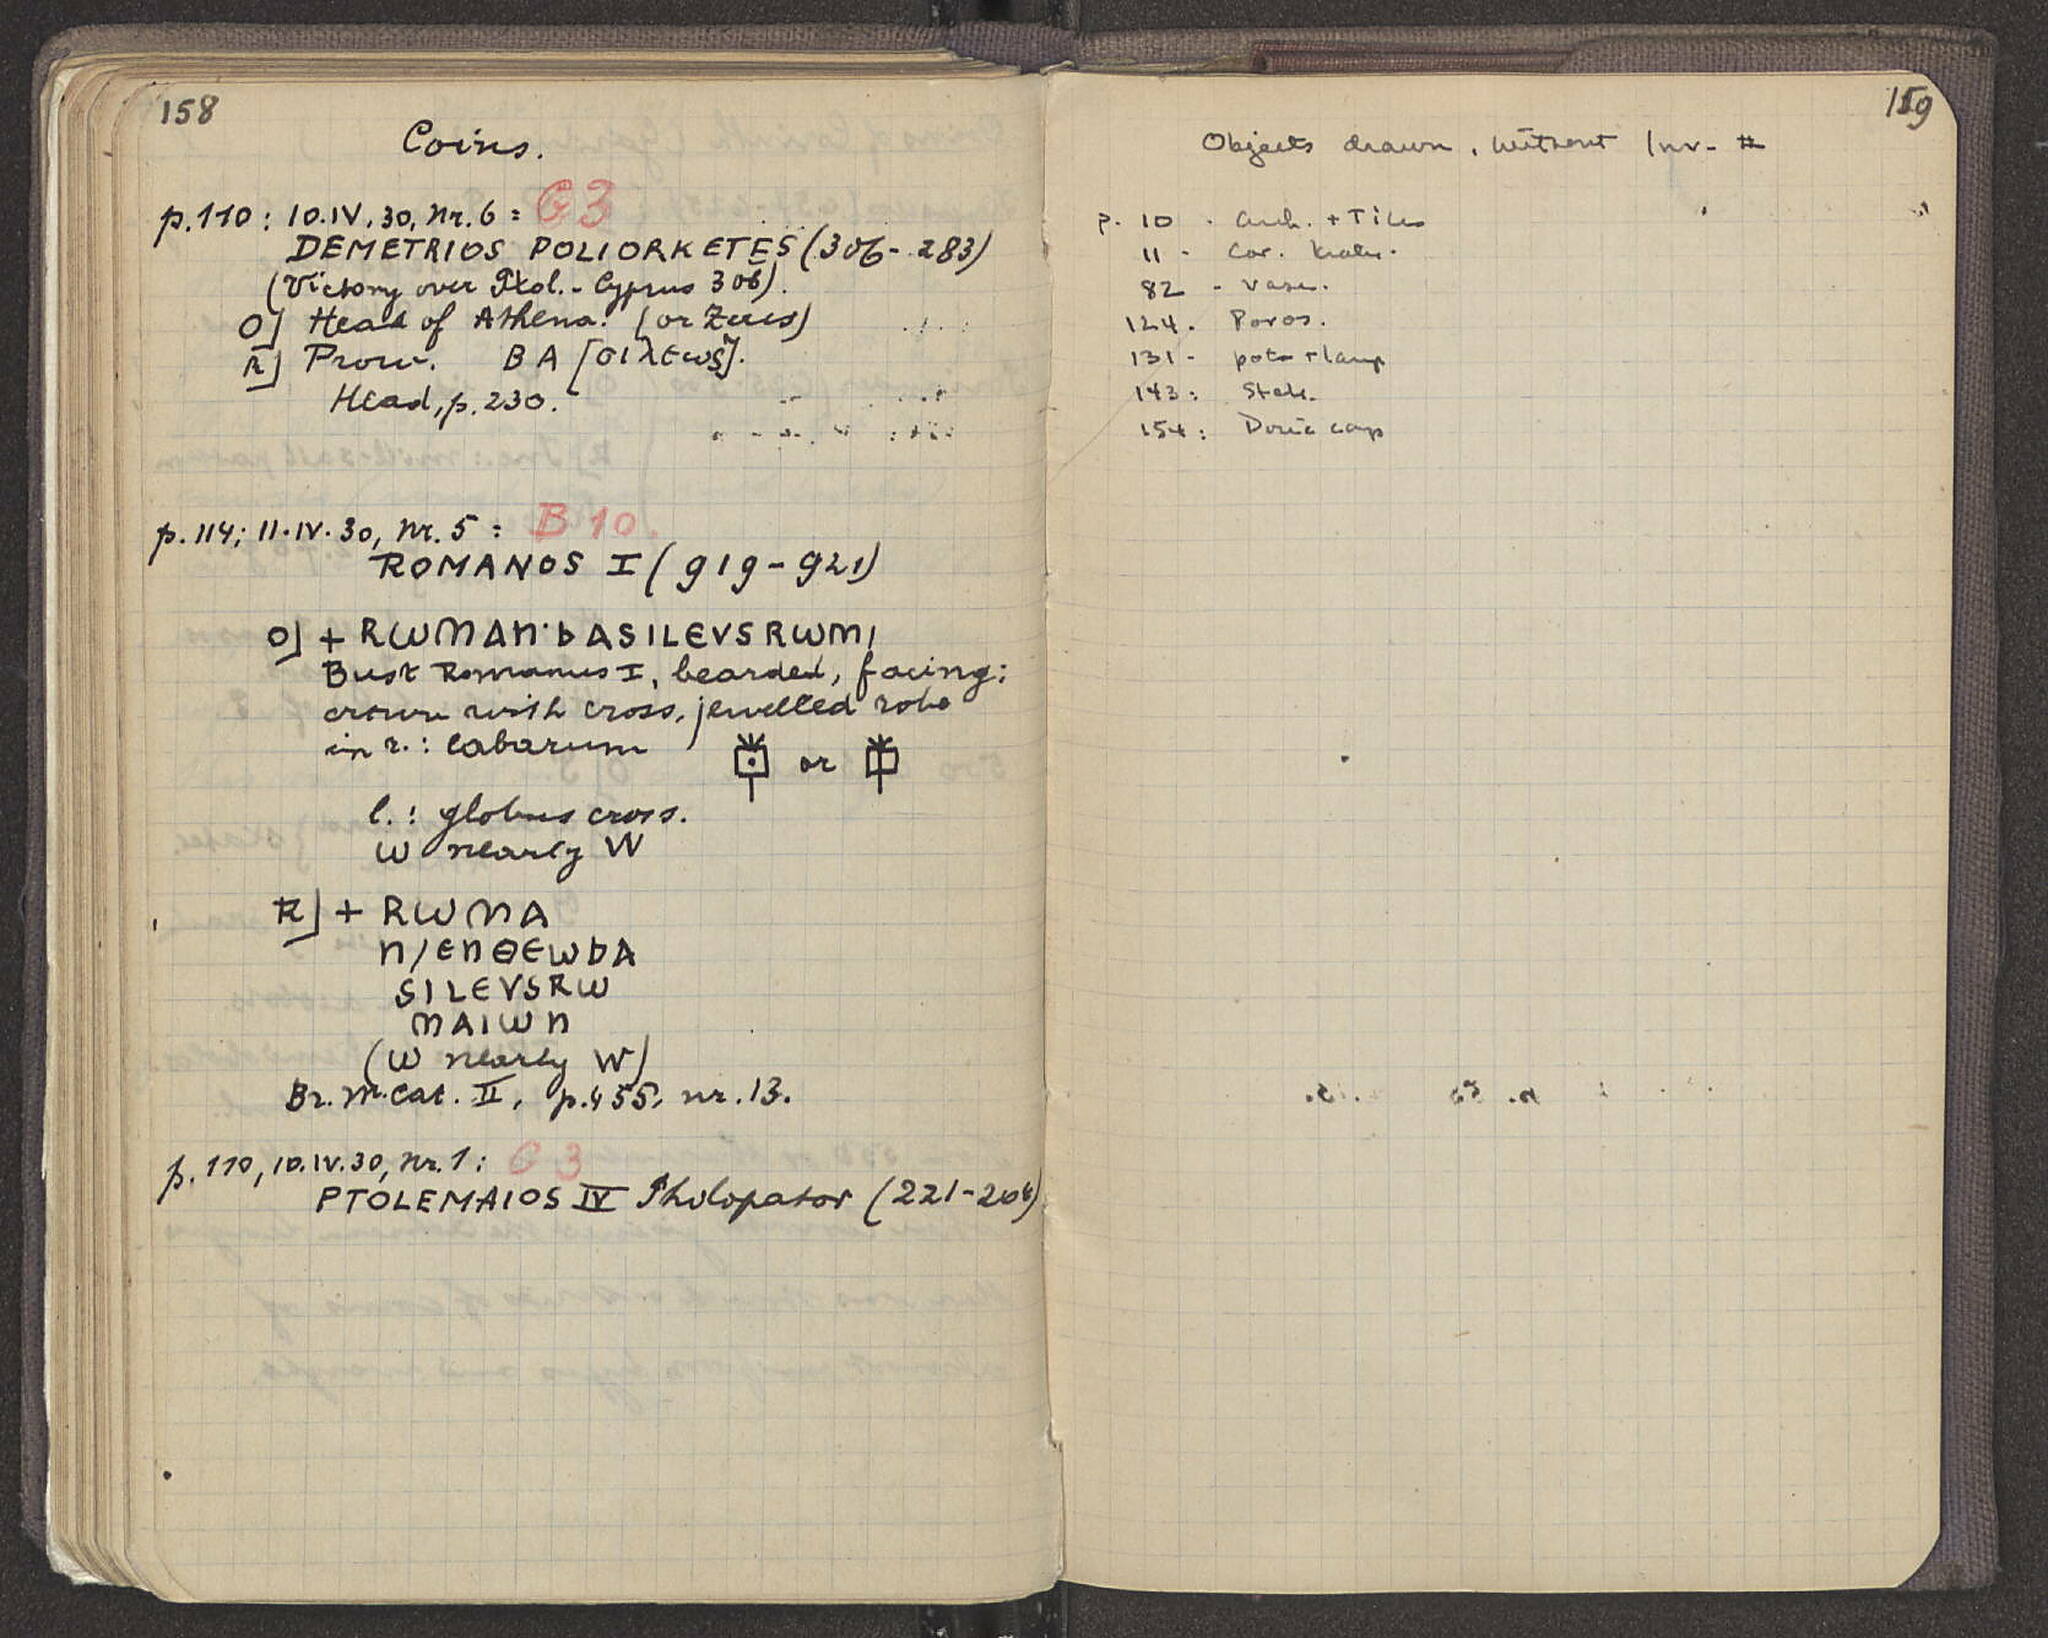 158
Coins.
p.110: 10.IV.30, Nr. 6 = G3
DEMETRIOS POLIORKETES (306-283)
(Victory over Ptol. - Cyprus 306).
O] Head of Athena. (or Zeus)
R] Prow. BA[σιλεως].
Head, p. 230.
p. 114; 11.IV.30, Nr. 5 = B 10.
ROMANOS I (919-921)
O] + RWMAN·bASILEVSRWM,
Bust Romanus I, bearded, facing;
crown with cross, jewelled robe
in r.: labarum or
l.: globus cross.
ω nearly W
R] + RWMA
n/EnΘEωbA
SILEVSRω
MAIωn
(ω nearly W)
Br. M. Cat. II, p. 455, nr. 13.
p. 110, 10.IV.30, Nr. 1: G 3
PTOLEMAIOS IV Philopator (221-204)
159
Objects drawn, without Inv. #
p. 10 - Arch. + Tiles
11 - Cor. krater.
82 - Vase.
124. Poros.
131 - pots + lamp
143: Stele.
154: Doric cap